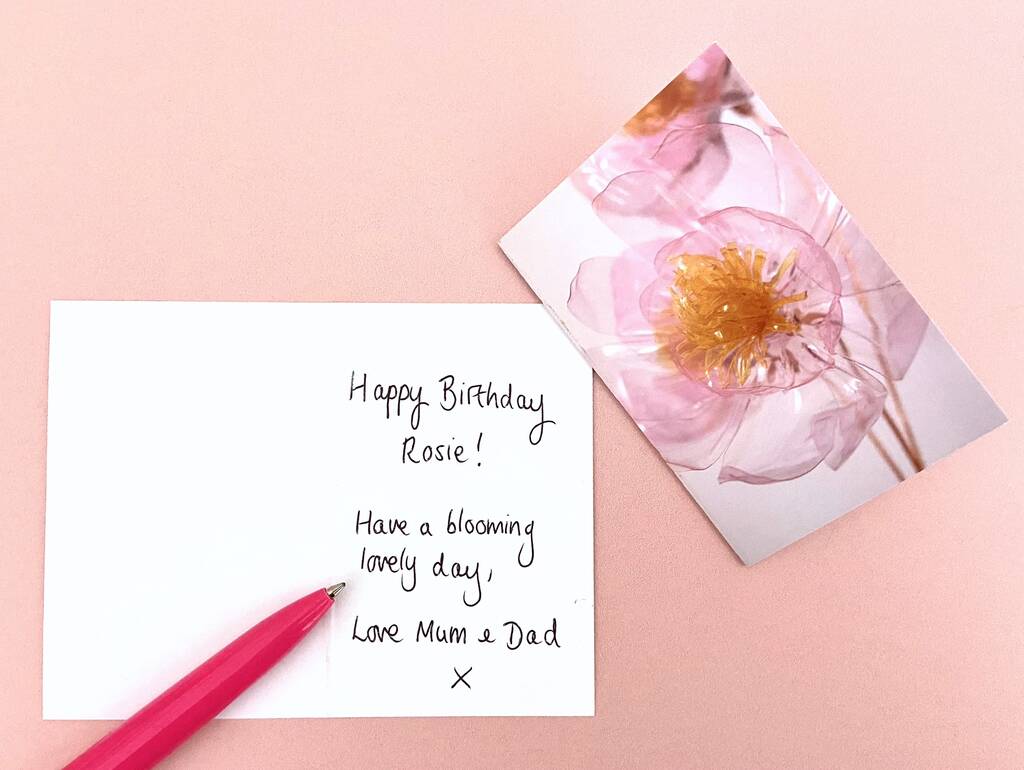 Happy Birthday
Rosie!
Have a blooming
lovely day,
Love Mum e Dad
X